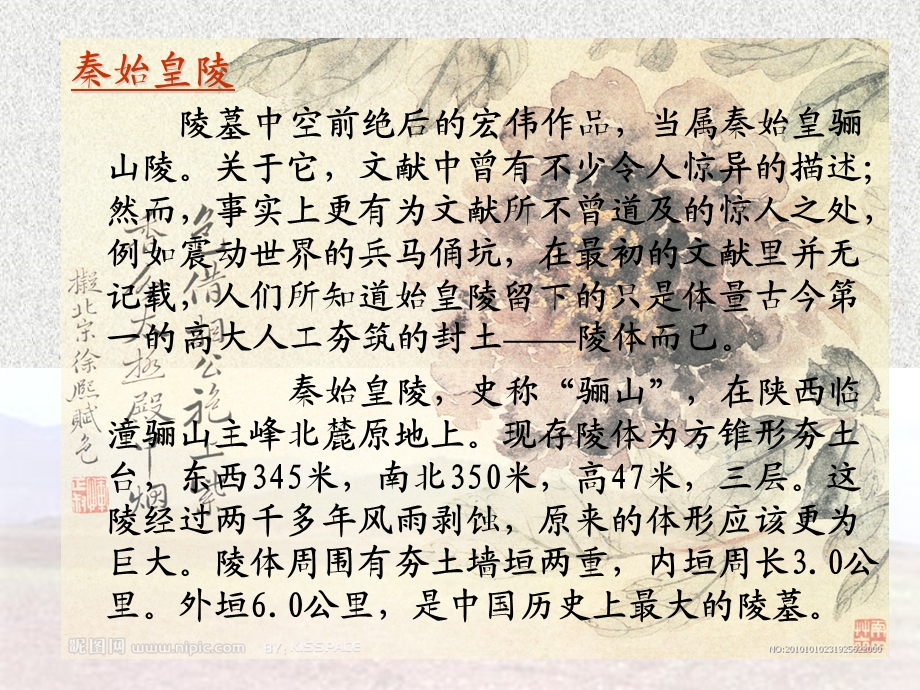 秦始皇陵
陵墓中空前绝后的宏伟作品，当属秦始皇骊
山陵。关于它，文献中曾有不少令人惊异的描述；
然而，事实上更有为文献所不曾道及的惊人之处，
例如震动世界的兵马俑坑，在最初的文献里并无
记载，人们所知道始皇陵留下的只是体量古今第
一的高大人工夯筑的封土——陵体而已。
秦始皇陵，史称“骊山”，在陕西临
潼骊山主峰北麓原地上。现存陵体为方锥形夯土
台，东西345米，南北350米，高47米，三层。这
陵经过两千多年风雨剥蚀，原来的体形应该更为
巨大。陵体周围有夯土墙垣两重，内垣周长3.0公
里。外垣6.0公里，是中国历史上最大的陵墓。
擬北宗徐熙賦色
昵图网 www.nipic.com
BY: KISSPACE